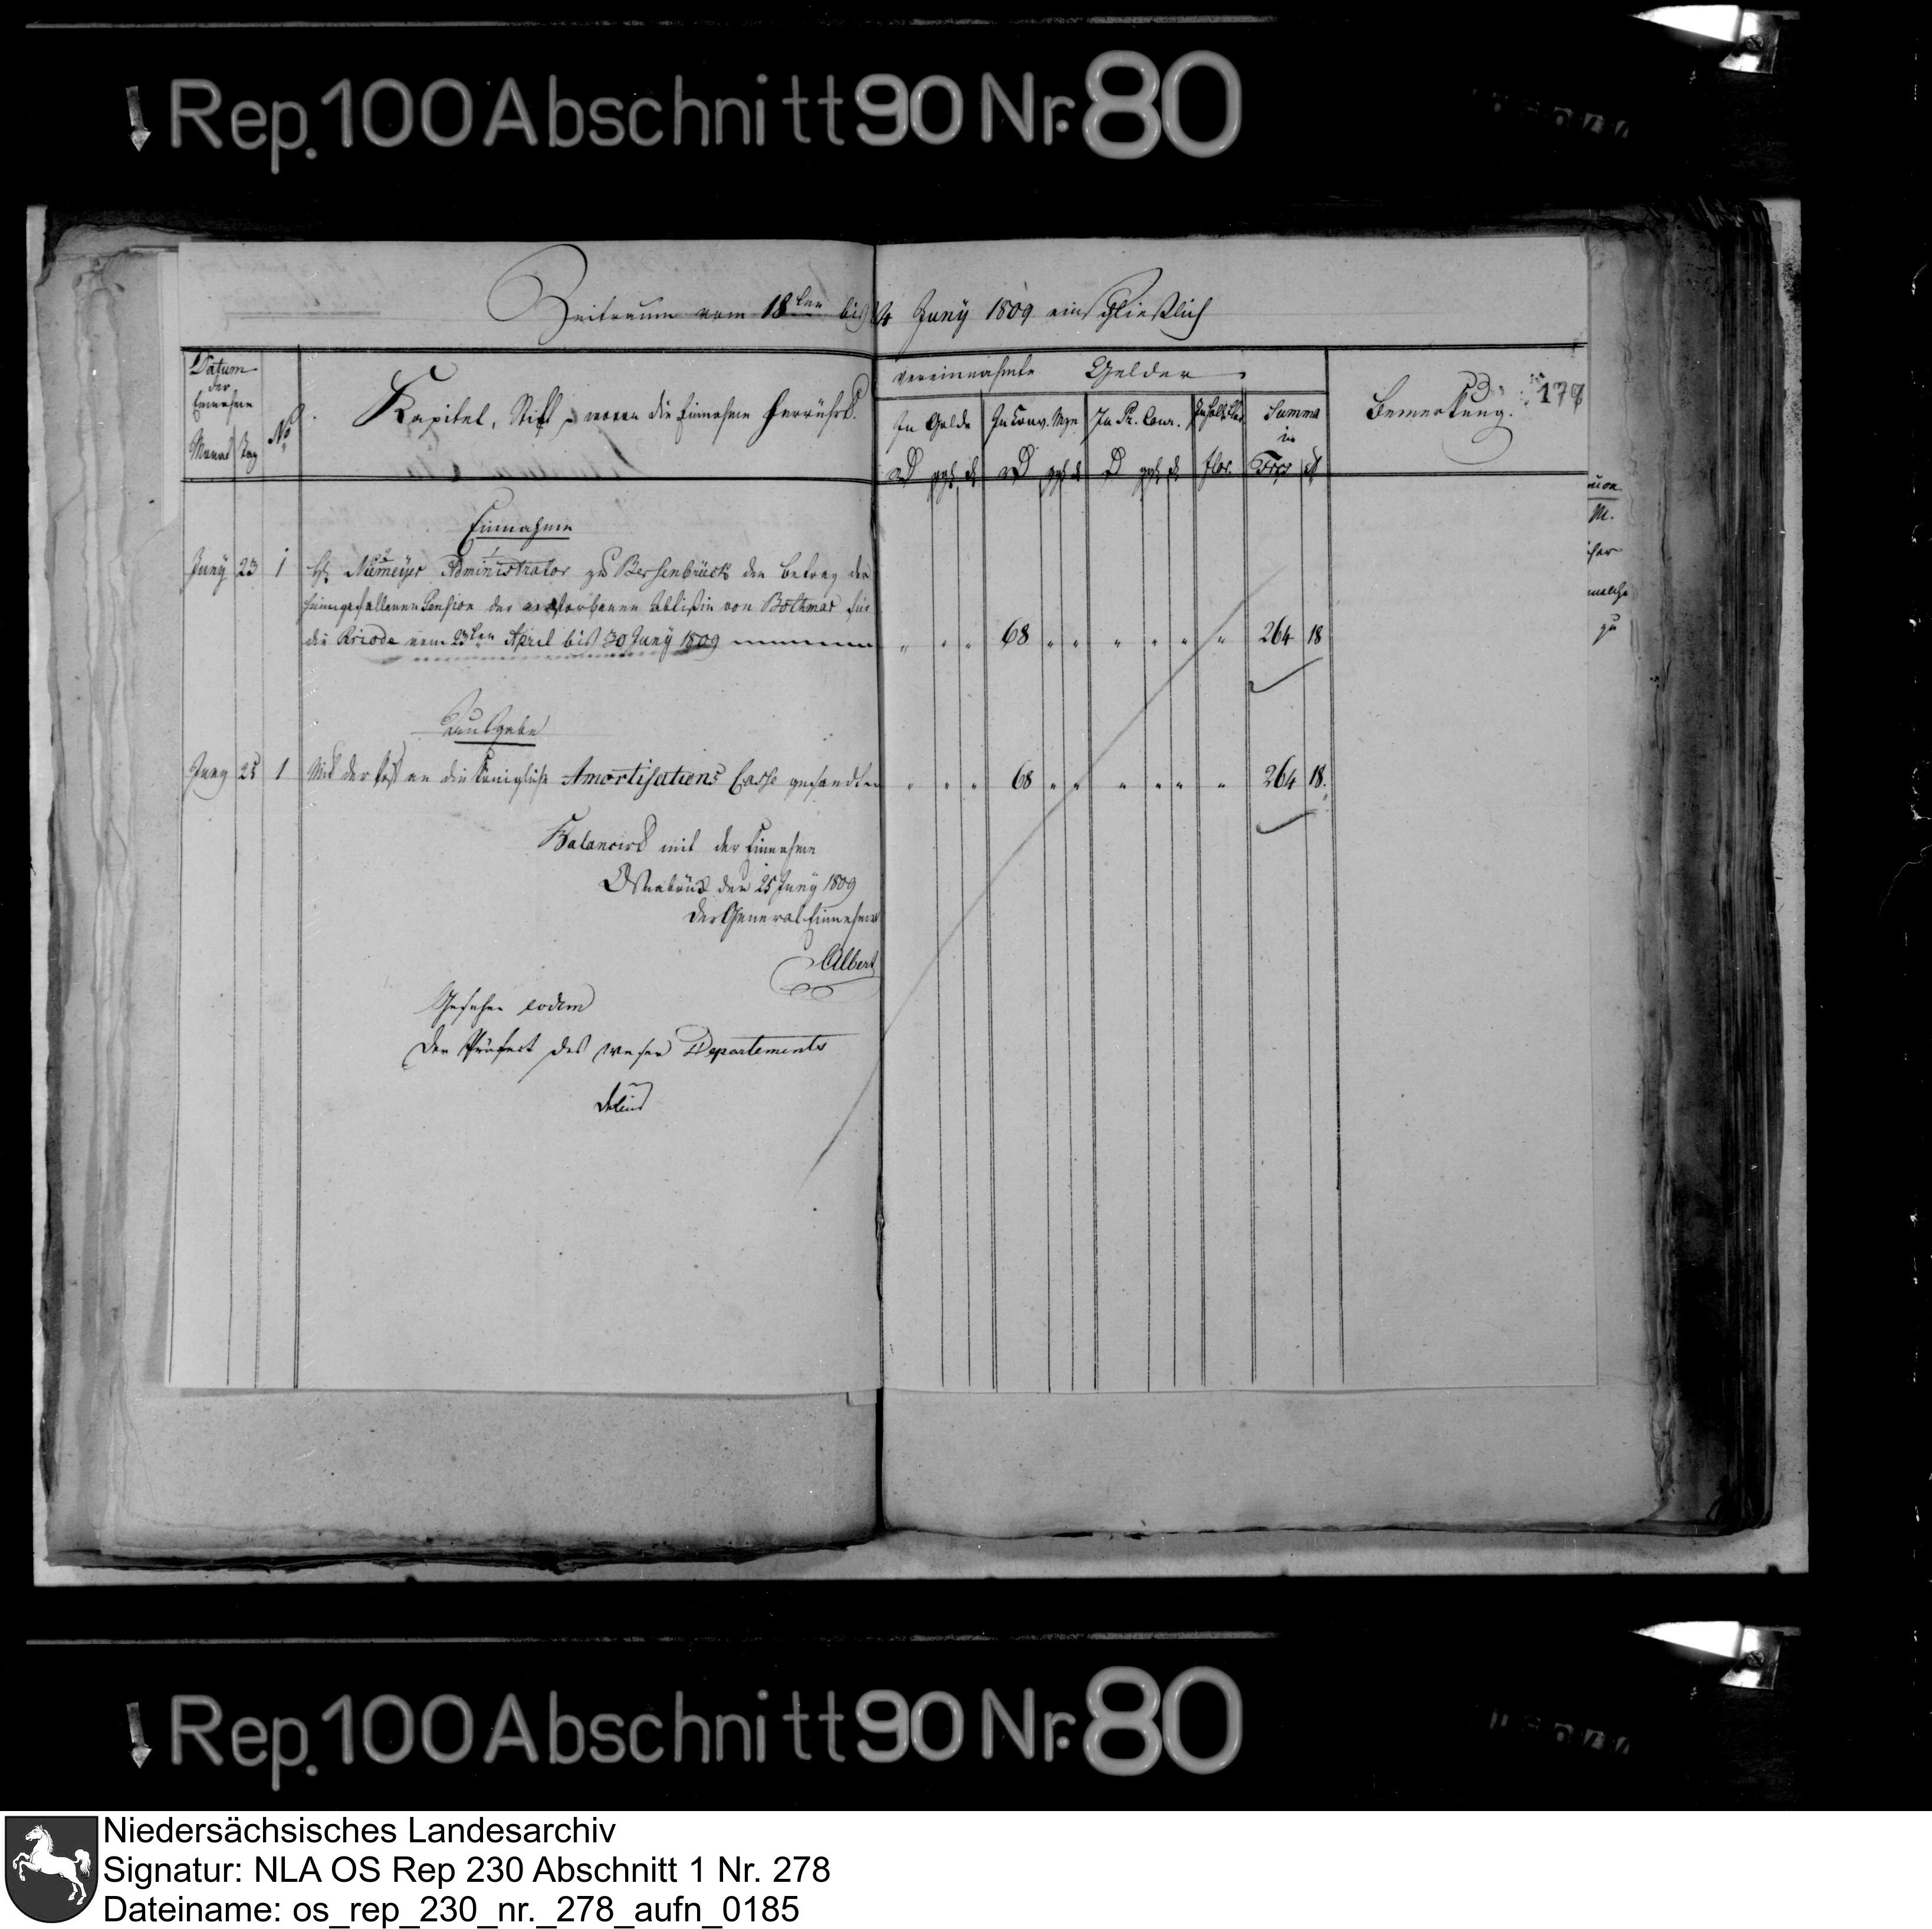 Rep. 100 Abschnitt 90 Nr. 80
Zeitraum vom 18ten bis 24 Juny 1809 einschließlich
Datum
der
Einnahme
Monat Tag
No
Kapitel, Stift woran die Einnahme herrührt.
Vereinnahmte Gelder
In Golde
In Conv. Mze
In Pr. Cour.
Summa
in
Frcs
flor.
Bemerkung.
177
Einnahme
Juny 23 1 H. Niemeyer Administrator zu Bersenbrück den Betrag der
heimgefallenen Pension der verstorbenen Abtißin von Bothmar für
die Periode vom 23ten April bis 30 Juny 1809 68 264 18
Ausgabe
Juny 25 1 Mit der Post an die Königliche Amortisations Casse gesandt 68 264 18.
Balancirt mit der Einnahme
Osnabrück den 25 Juny 1809
Der General Einnehmer
Albert
Gesehen eodem
Der Präfect des Weser Departements
M.
zu
Rep. 100 Abschnitt 90 Nr. 80
Niedersächsisches Landesarchiv
Signatur: NLA OS Rep 230 Abschnitt 1 Nr. 278
Dateiname: os_rep_230_nr._278_aufn_0185